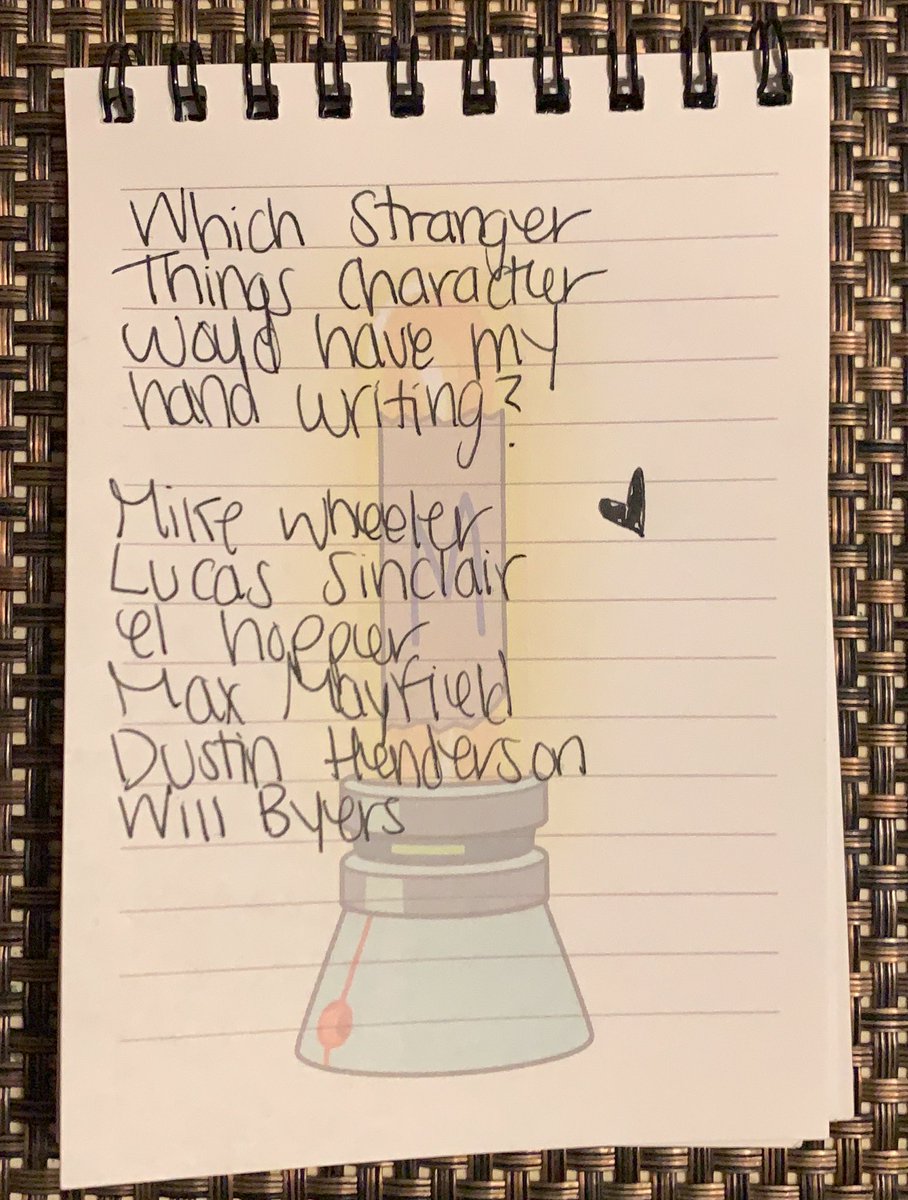 Which Stranger
Things Character
Would have my
hand writing?
Mike wheeler
Lucas Sinclair
El hopper
Max Mayfield
Dustin Henderson
Will Byers
M